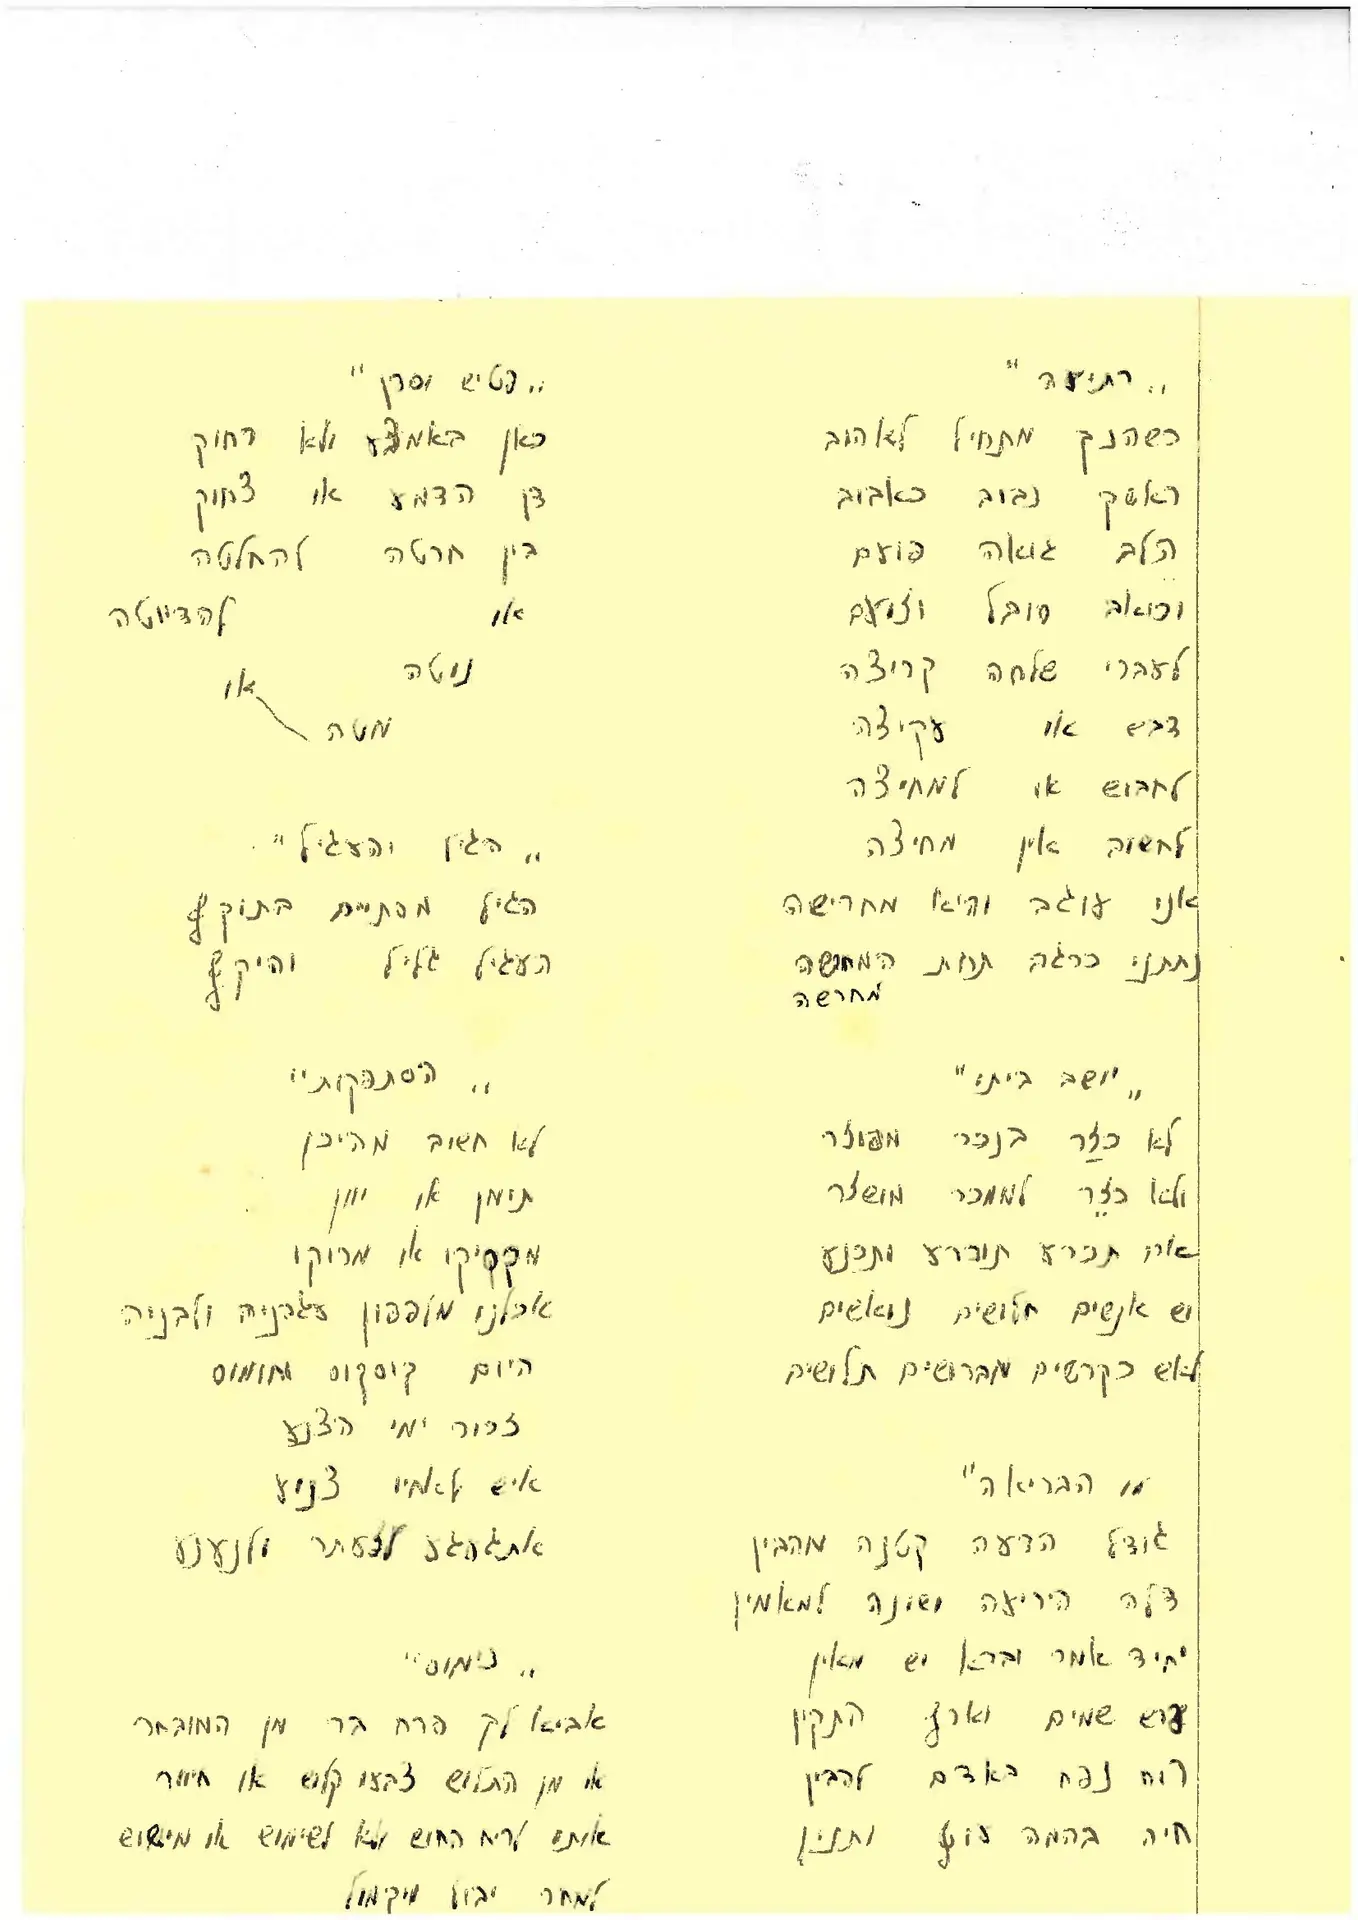 „רתיעה"
כשהנך מתחיל לאהוב
ראשך נבוב כאבוב
הלב גואה פועם
וכואב סובל וזועם
לעברי שלחה קריצה
דבש או עקיצה
לחבוש או למחיצה
לחשוב אין מחיצה
אני עוגב והיא מחרישה
נתתני כרגב תחת המחרשה
מחרשה
„יושב ביתי"
לא כזר בנכר מפוזר
ולא כזר לממכר מושזר
את תכרע תוכרע ותכנע
יש אנשים חלושים נואשים
לאש כקרשים מברושים תלושים
„הבריאה"
גודל הדעה קטנה מהבין
דלה היריעה ושונה למאמין
יחיד אמר וברא יש מאין
ערש שמים וארץ התקין
רוח נפח באדם להבין
חיה בהמה עוף ותנין
„פטיש וסדן"
כאן באמצע ולא רחוק
דן הדמע או צחוק
בין חרטה להחלטה
או להדיוטה
נוטה או
מטה
„הגיל והעגיל"
הגיל מסתיים בתוקף
העגיל גליל והיקף
„הסתפקות"
לא חשוב מהיכן
תימן או יוון
מקסיקו או מרוקו
אכלנו מלפפון עגבניה ולבניה
היום קוסקוס וחומוס
זכור ימי הצנע
איש לאחיו צנוע
אתגעגע לזעתר ולנענע
„נימוס"
אביא לך פרח בר מן המובחר
או מן התלוש צבעו קלוש או חיוור
אותו לריח החוש ולא לשימוש או מישוש
למחר יבול מיקמול